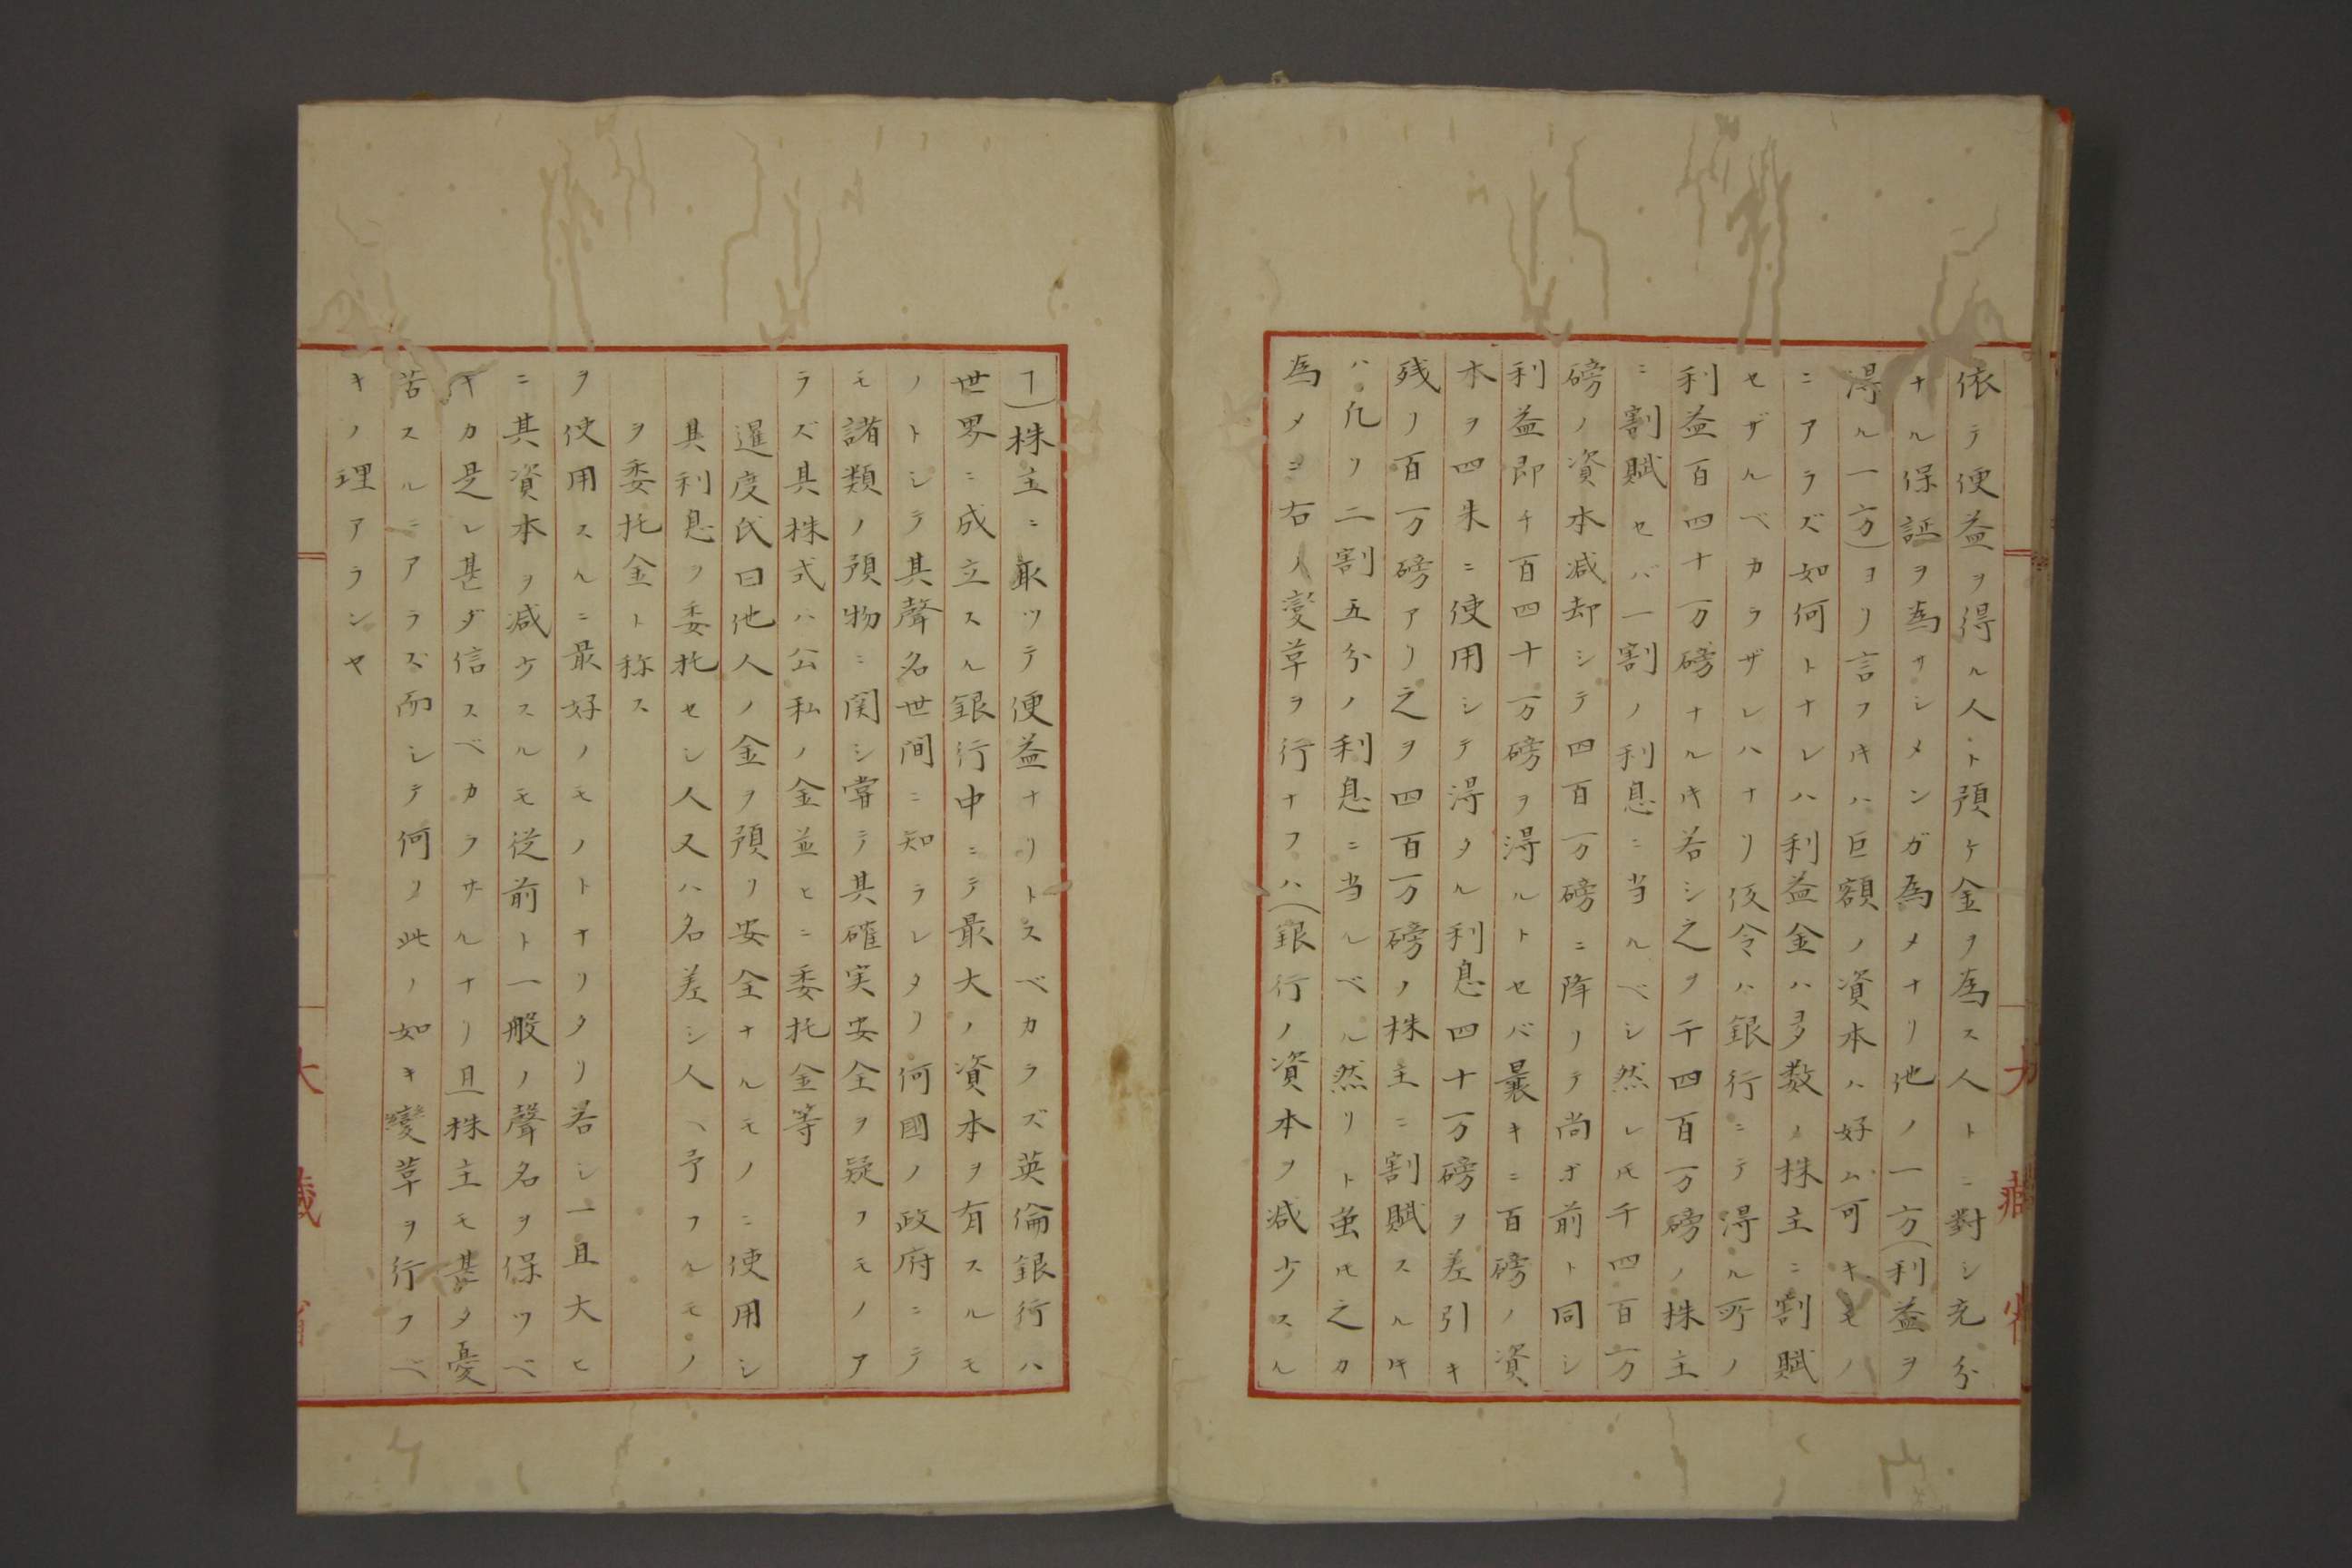 依テ便益ヲ得ル人ト預ケ金ヲ為ス人トニ對シ充分
ナル保証ヲ為サシメンガ為メナリ他ノ一方(利益ヲ
得ル一方)ヨリ言フ𪜈ハ巨額ノ資本ハ好ム可キモノ
ニアラズ如何トナレハ利益金ハ多数ノ株主ニ割賦
セザルベカラザレハナリ仮令ハ銀行ニテ得ル所ノ
利益百四十万磅ナルキ若シ之ヲ千四百万磅ノ株主
ニ割賦セバ一割ノ利息ニ当ルベシ然レ𪜈千四百万
磅ノ資本減却シテ四百万磅ニ降リテ尚ホ前ト同シ
利益即チ百四十万磅ヲ得ルトセバ曩キニ百磅ノ資
本ヲ四朱ニ使用シテ得タル利息四十万磅ヲ差引キ
残リ百万磅アリ之ヲ四百万磅ノ株主ニ割賦スルキ
ハ凡ソ二割五分ノ利息ニ当ルベル然リト虽𪜈之カ
為メニ右ノ変革ヲ行ナフハ(銀行ノ資本ヲ減少スル
ヿ)株主ニ取ツテ便益ナリトスベカラズ英倫銀行ハ
世界ニ成立スル銀行中ニテ最大ノ資本ヲ有スルモ
ノトシテ其聲名世間ニ知ラレタリ何國ノ政府ニテ
モ諸類ノ預物ニ関シ嘗テ其確実安全ヲ疑フモノア
ラズ其株式ハ公私ノ金並ヒニ委托金等
暹度氏曰他人ノ金ヲ預リ安全ナルモノニ使用シ
其利息ヲ委托セシ人又ハ名差シ人ヘ予フルモノ
ヲ委托金ト称ス
ヲ使用スルニ最好ノモノトナリタリ若シ一旦大ヒ
ニ其資本ヲ減少スルモ従前ト一般ノ聲名ヲ保ツベ
キカ是レ甚ダ信スベカラサルナリ且株主モ甚タ憂
苦スルニアラズ而シテ何ソ此ノ如キ變革ヲ行フベ
キノ理アランヤ
大藏省
大藏省